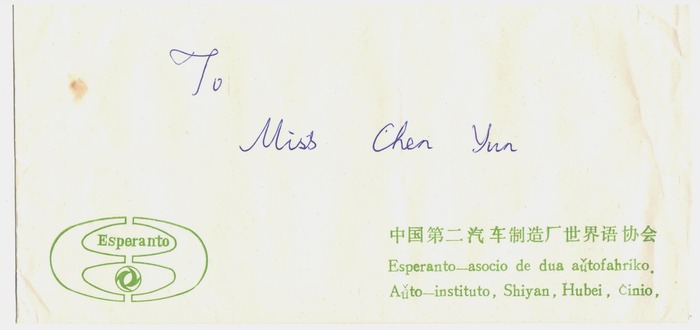 To
Miss Chen Yun
Esperanto
中国第二汽车制造厂世界语协会
Esperanto—asocio de dua aŭtofahriko.
Aŭto—instituto, Shiyan, Hubei, Ĉinio,